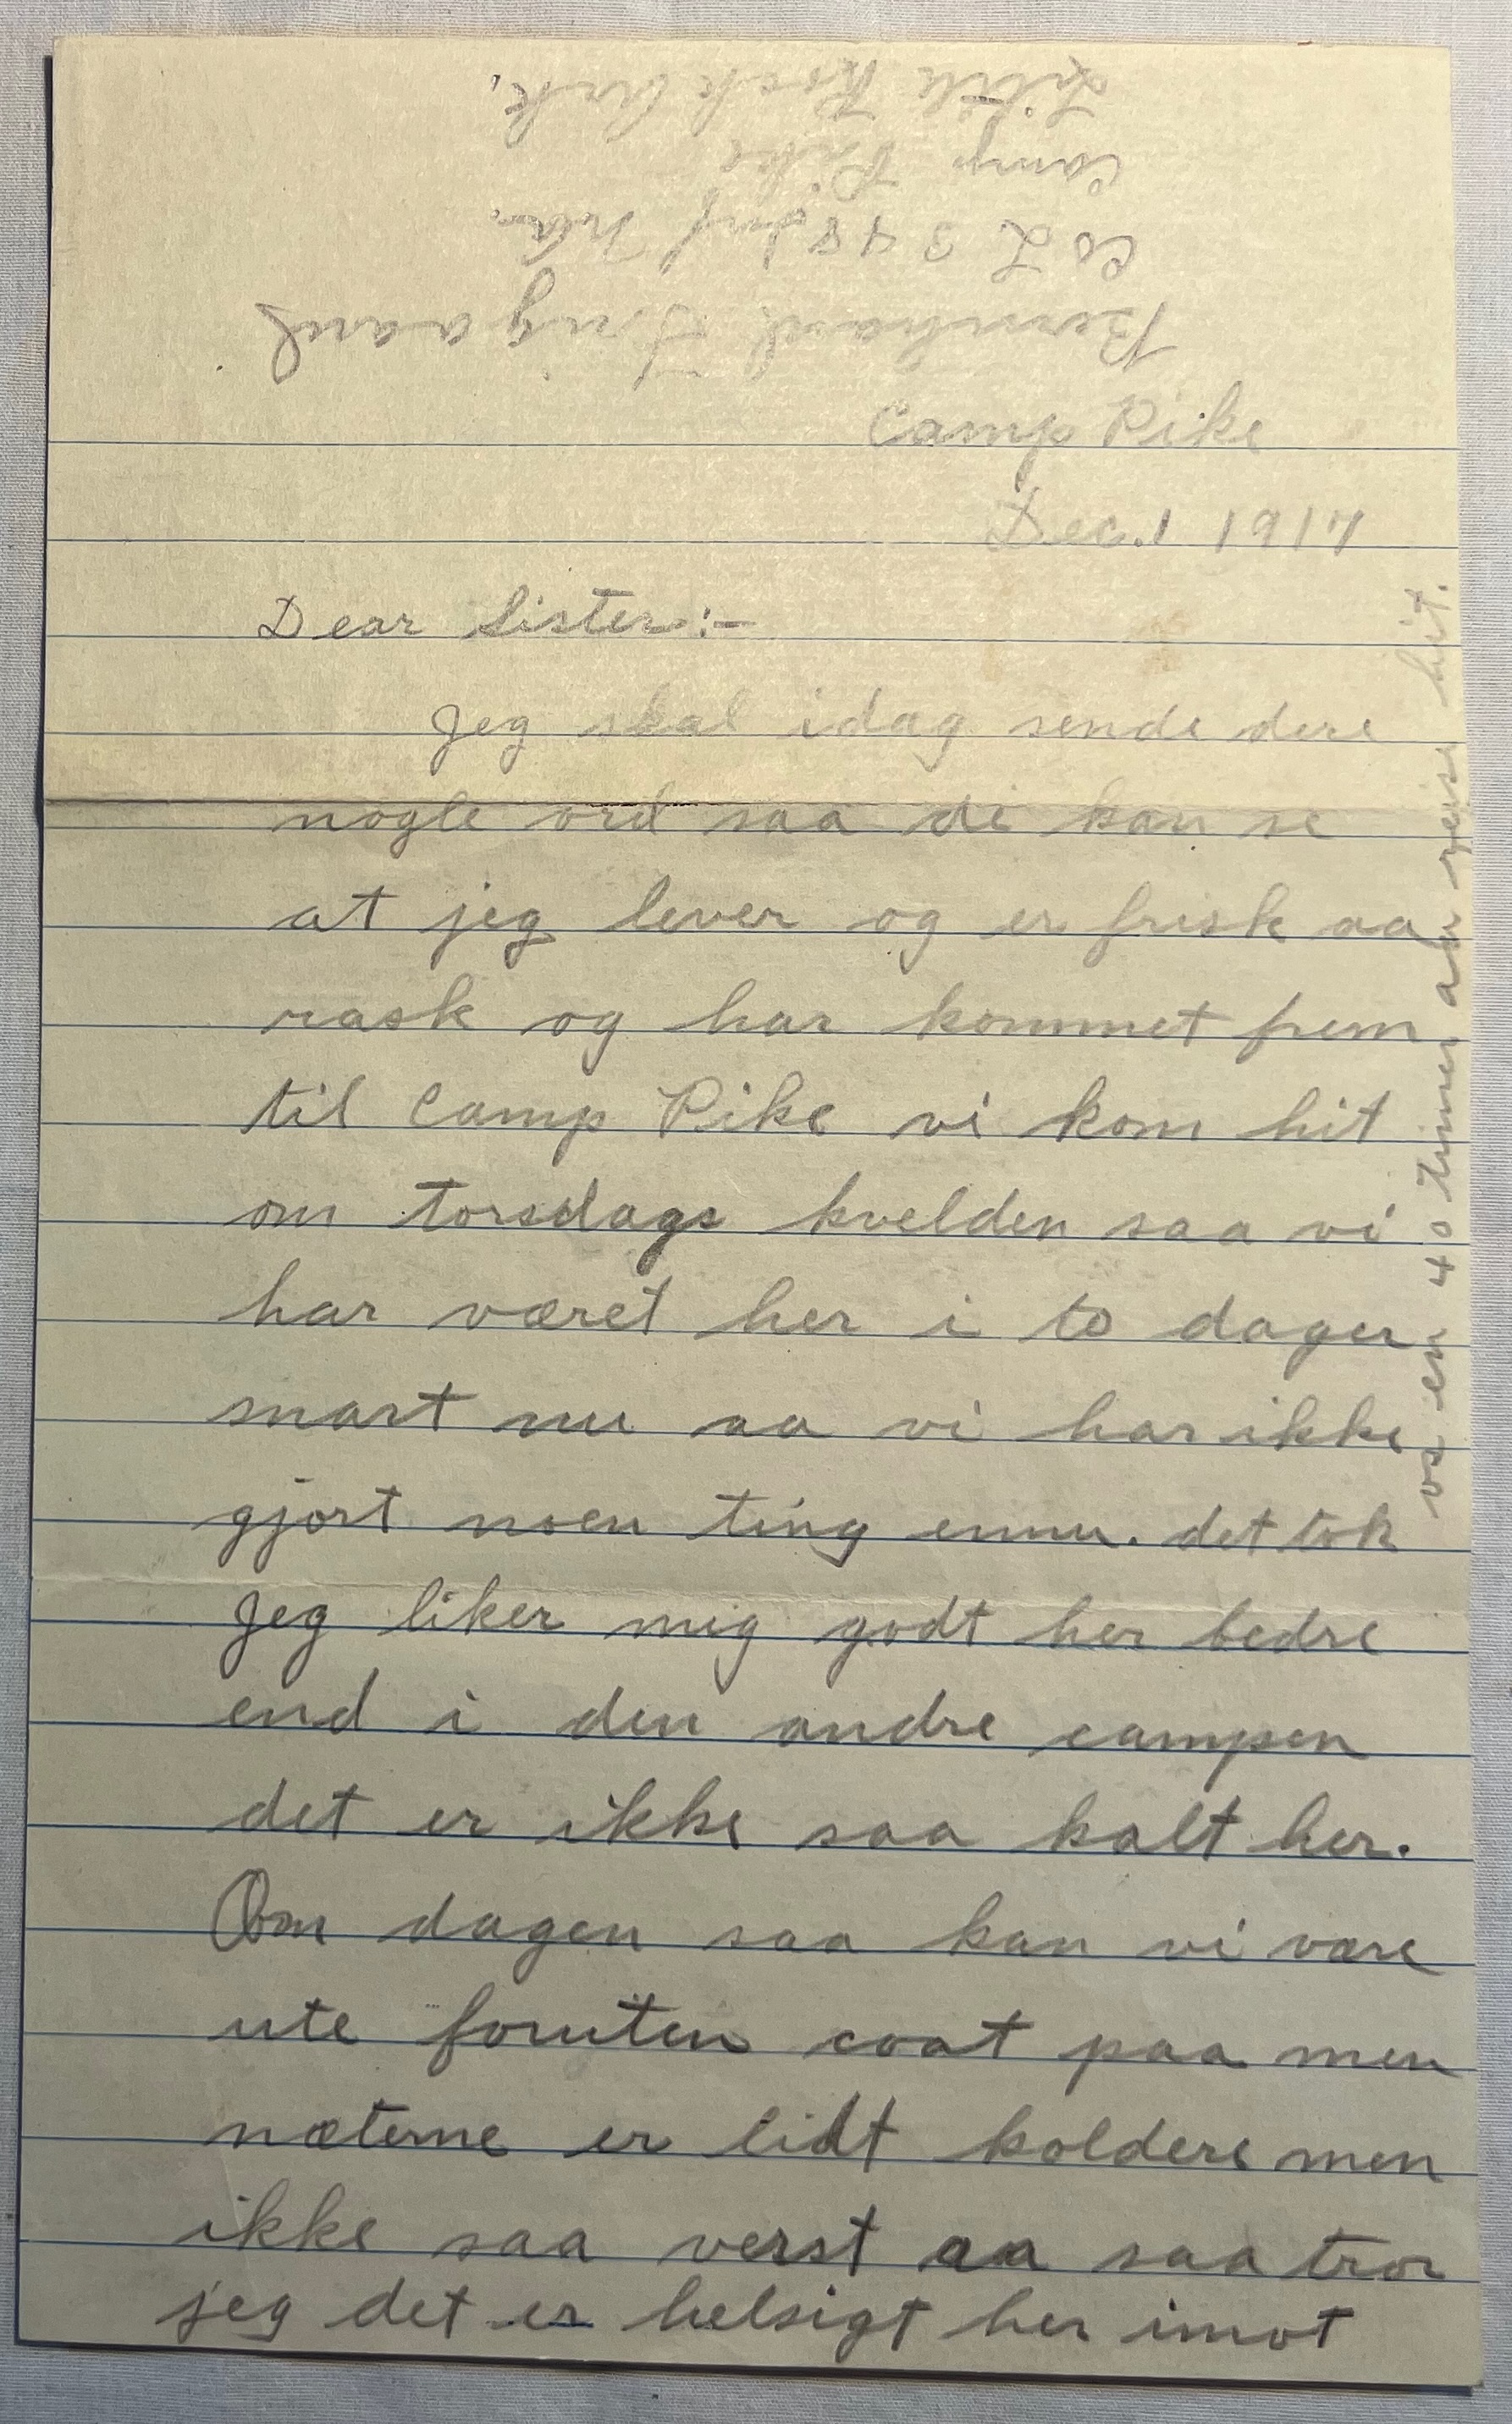 Camp Pike
Dec. 1 1917
Dear Sister:-
Jeg skal idag sende dere
nogle ord saa di kan se
at jeg lever og er frisk aa
rask og har kommet frem
til Camp Pike vi kom hit
om torsdags kvelden saa vi
har været her i to dager
snart nu aa vi har ikke
gjort noen ting ennu. det tok
Jeg liker mig godt her bedre
end i den andre campen
det er ikke saa kalt her.
Om dagen saa kan vi være
ute foruten coat paa men
næterne er lidt koldere men
ikke saa verst aa saa tror
jeg det er helsigt her imot
os en 40 timer aa reise hit.
Bernhard
Co L 348 Inf N.A.
Camp Pike
Little Rock Ark.